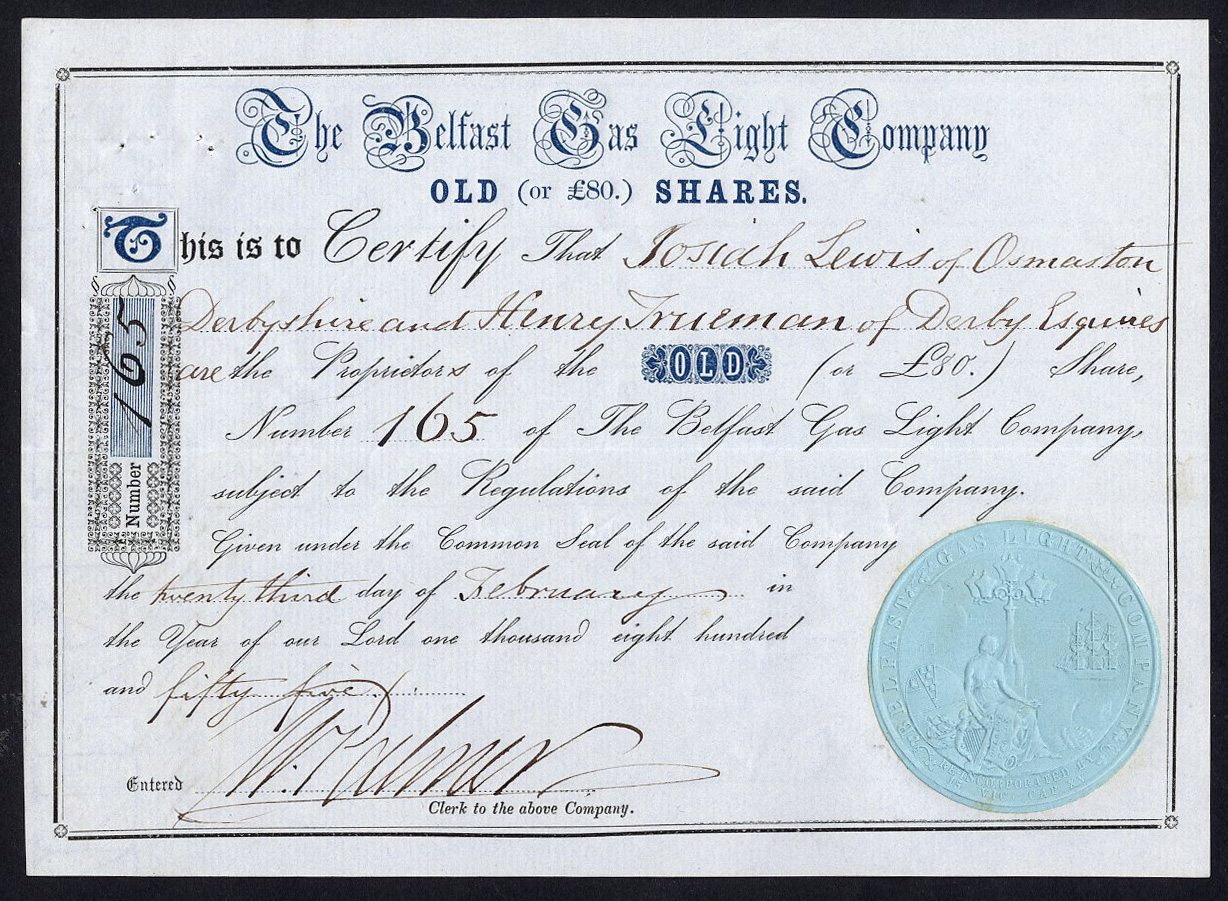 The Belfast Gas Light Company
OLD (or £80.) SHARES.
This is to Certify That Josiah Lewis of Osmaston
Derbyshire and Henry Trueman of Derby Esquires
are the Proprietors of the OLD (or £80.) Share,
Number 165 of The Belfast Gas Light Company,
subject to the Regulations of the said Company.
Given under the Common Seal of the said Company
the twenty third day of February in
the Year of our Lord one thousand eight hundred
and fifty five
Entered W. Palmer
Clerk to the above Company.
Number 165
BELFAST GAS LIGHT COMPANY
INCORPORATED BY